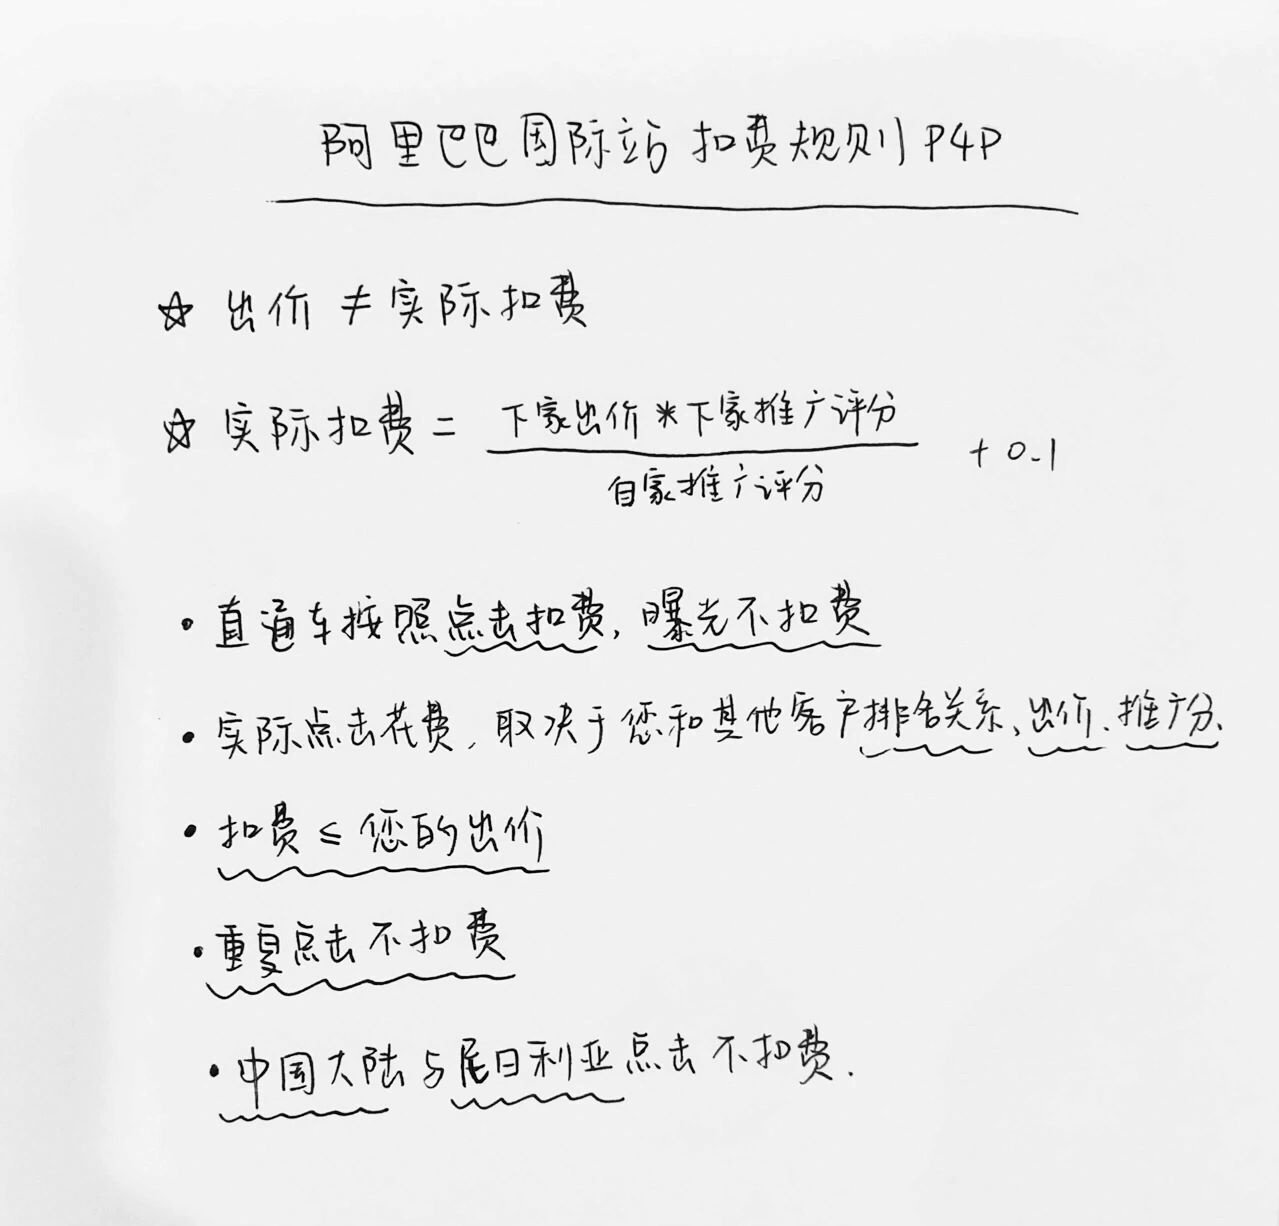 阿里巴巴国际站 扣费规则 P4P
☆ 出价 ≠ 实际扣费
☆ 实际扣费 = 下家出价 * 下家推广评分 / 自家推广评分 + 0.1
· 直通车按照点击扣费, 曝光不扣费
· 实际点击花费, 取决于您和其他客户排名关系、出价、推广分、
· 扣费 ≤ 您的出价
· 重复点击不扣费
· 中国大陆与尼日利亚点击不扣费.